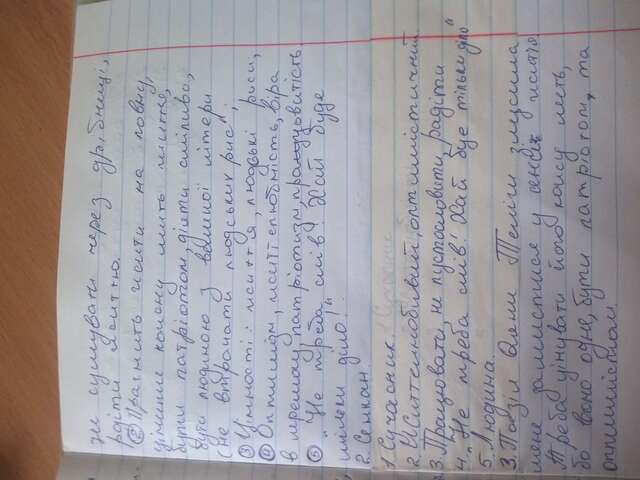 не сумувати через дрібниці,
радіти життю.
② Прагнить жити на повну,
цінить кожну мить життя,
бути патріотом, діяти сміливо,
бути людиною з великої літери
(не втрачати людських рис).
③ Цінності: життя, людські риси,
④ Оптимізм, життєлюбність, віра
в перемогу, патріотизм, працьовитість.
⑤ "Не треба слів! Хай буде
тільки діло!"
2. Сенкан.
1. Сучасник.
2. Життєлюбивий, оптимістичний
3. Працювати, не пустословити, радіти
4. "Не треба слів! Хай буде тільки діло"
5. Людина.
3. Поезія Олени Теліги змусила
мене замислитися у сенсі життя.
Треба цінувати його кожну мить,
бо воно одне, бути патріотом, та
оптимістом